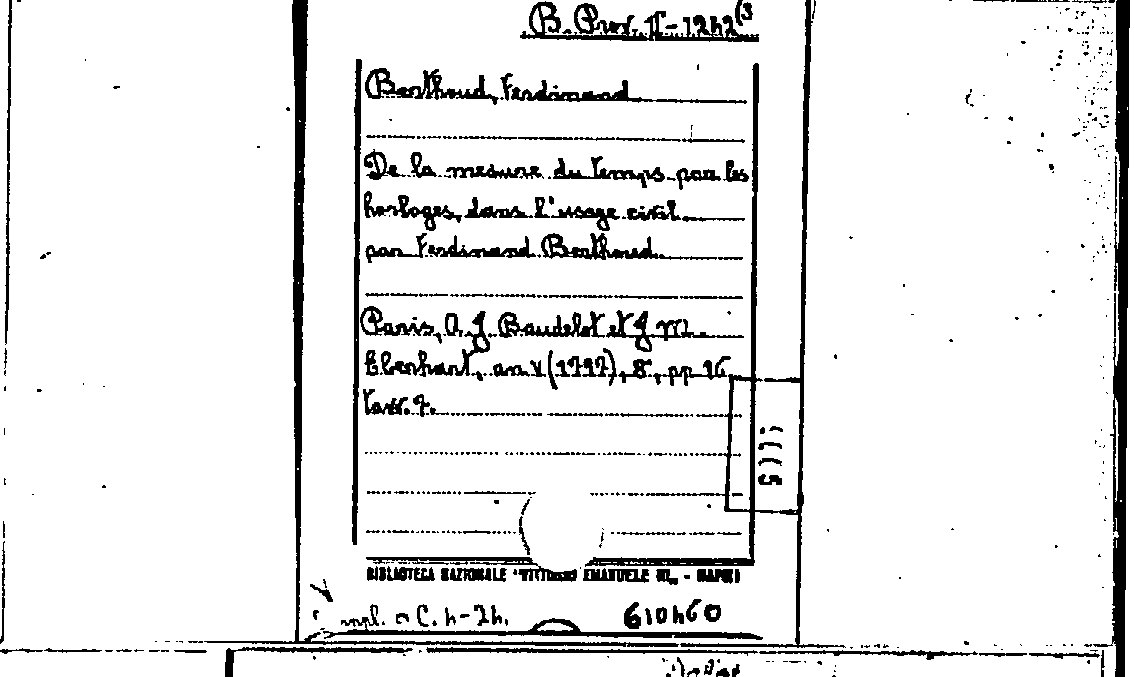 B. Prov. II-1242(3
Berthoud, Ferdinand
De la mesure du temps par les
horloges, dans l'usage civil
par Ferdinand Berthoud.
Paris, A. J. Baudelot et J. M.
Eberhart, an V (1797), 8°, pp 16
tavv. 7.
BIBLIOTECA NAZIONALE "VITTORIO EMANUELE III" - NAPOLI
mpl. a C. 4-24.
610460